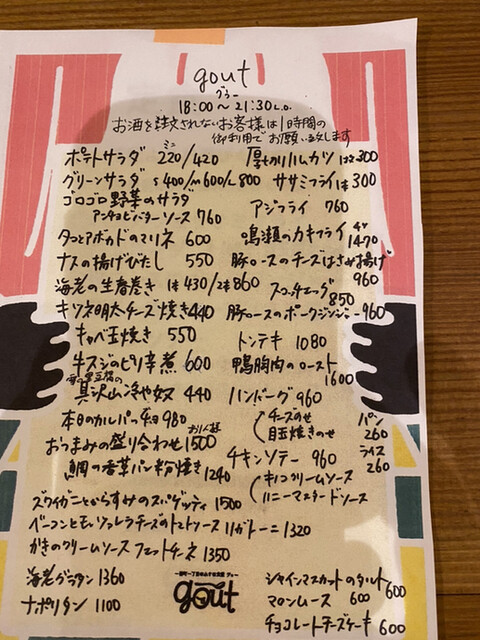 gout
グゥー
18:00〜21:30 L.O.
お酒を注文されないお客様は1時間の
御利用でお願い致します
ポテトサラダ ミニ 220/420
グリーンサラダ S400/M600/L800
ゴロゴロ野菜のサラダ
アンチョビバターソース 760
タコとアボカドのマリネ 600
ナスの揚げびたし 550
海老の生春巻き 1本430/2本860
キツネ明太チーズ焼き440
キャベ玉焼き 550
牛スジのピリ辛煮 600
具沢山冷や奴 440
本日のカルパッチョ 980
おつまみの盛り合わせ 1500
鯛の香草パン粉焼き 1240
ズワイガニとからすみのスパゲッティ 1500
ベーコンとモッツァレラチーズのトマトソース リガトーニ 1320
かきのクリームソース フェットチーネ 1350
海老グラタン 1360
ナポリタン 1100
厚切りハムカツ 1枚300
ササミフライ 1本 300
アジフライ 760
鳴瀬のカキフライ 4ヶ 1470
豚ロースのチーズはさみ揚げ 960
スコッチエッグ 850
豚ロースのポークジンジャー 960
トンテキ 1080
鴨胸肉のロースト 1600
ハンバーグ 960
チーズのせ
目玉焼きのせ
パン 260
ライス 260
チキンソテー 960
キノコクリームソース
ハニーマスタードソース
gout
シャインマスカットのタルト 600
マロンムース 600
チョコレートチーズケーキ 600